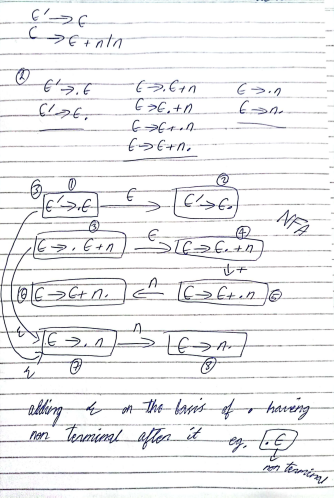 E' → E
E → E + n/n
②
E' → .E    E → .E+n    E → .n
E' → E.    E → E.+n    E → n.
E → E+.n
E → E+n.
③ ① E' → .E  E  ② E' → E.
NFA
③ E → .E+n  E  ④ E → E.+n
+
⑥ E → E+n.  n  E → E+.n ⑤
ε E → .n  n  E → n.
ε ⑦ ⑧
adding ε on the basis of . having
non terminal after it eg. .E
non terminal